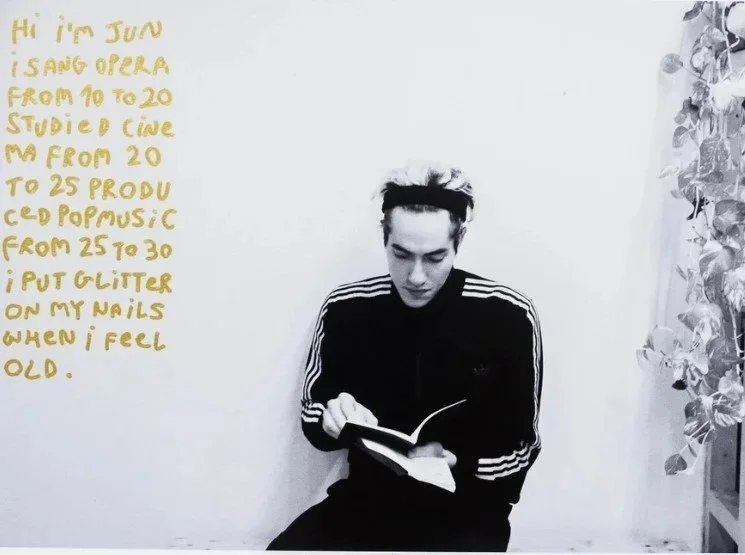 Hi i'm JUN
i SANG OPERA
FROM 10 TO 20
STUDiED CiNE
MA FROM 20
TO 25 PRODU
CED POPMUSiC
FROM 25 TO 30
i PUT GLiTTER
ON MY NAiLS
WHEN i FEEL
OLD.